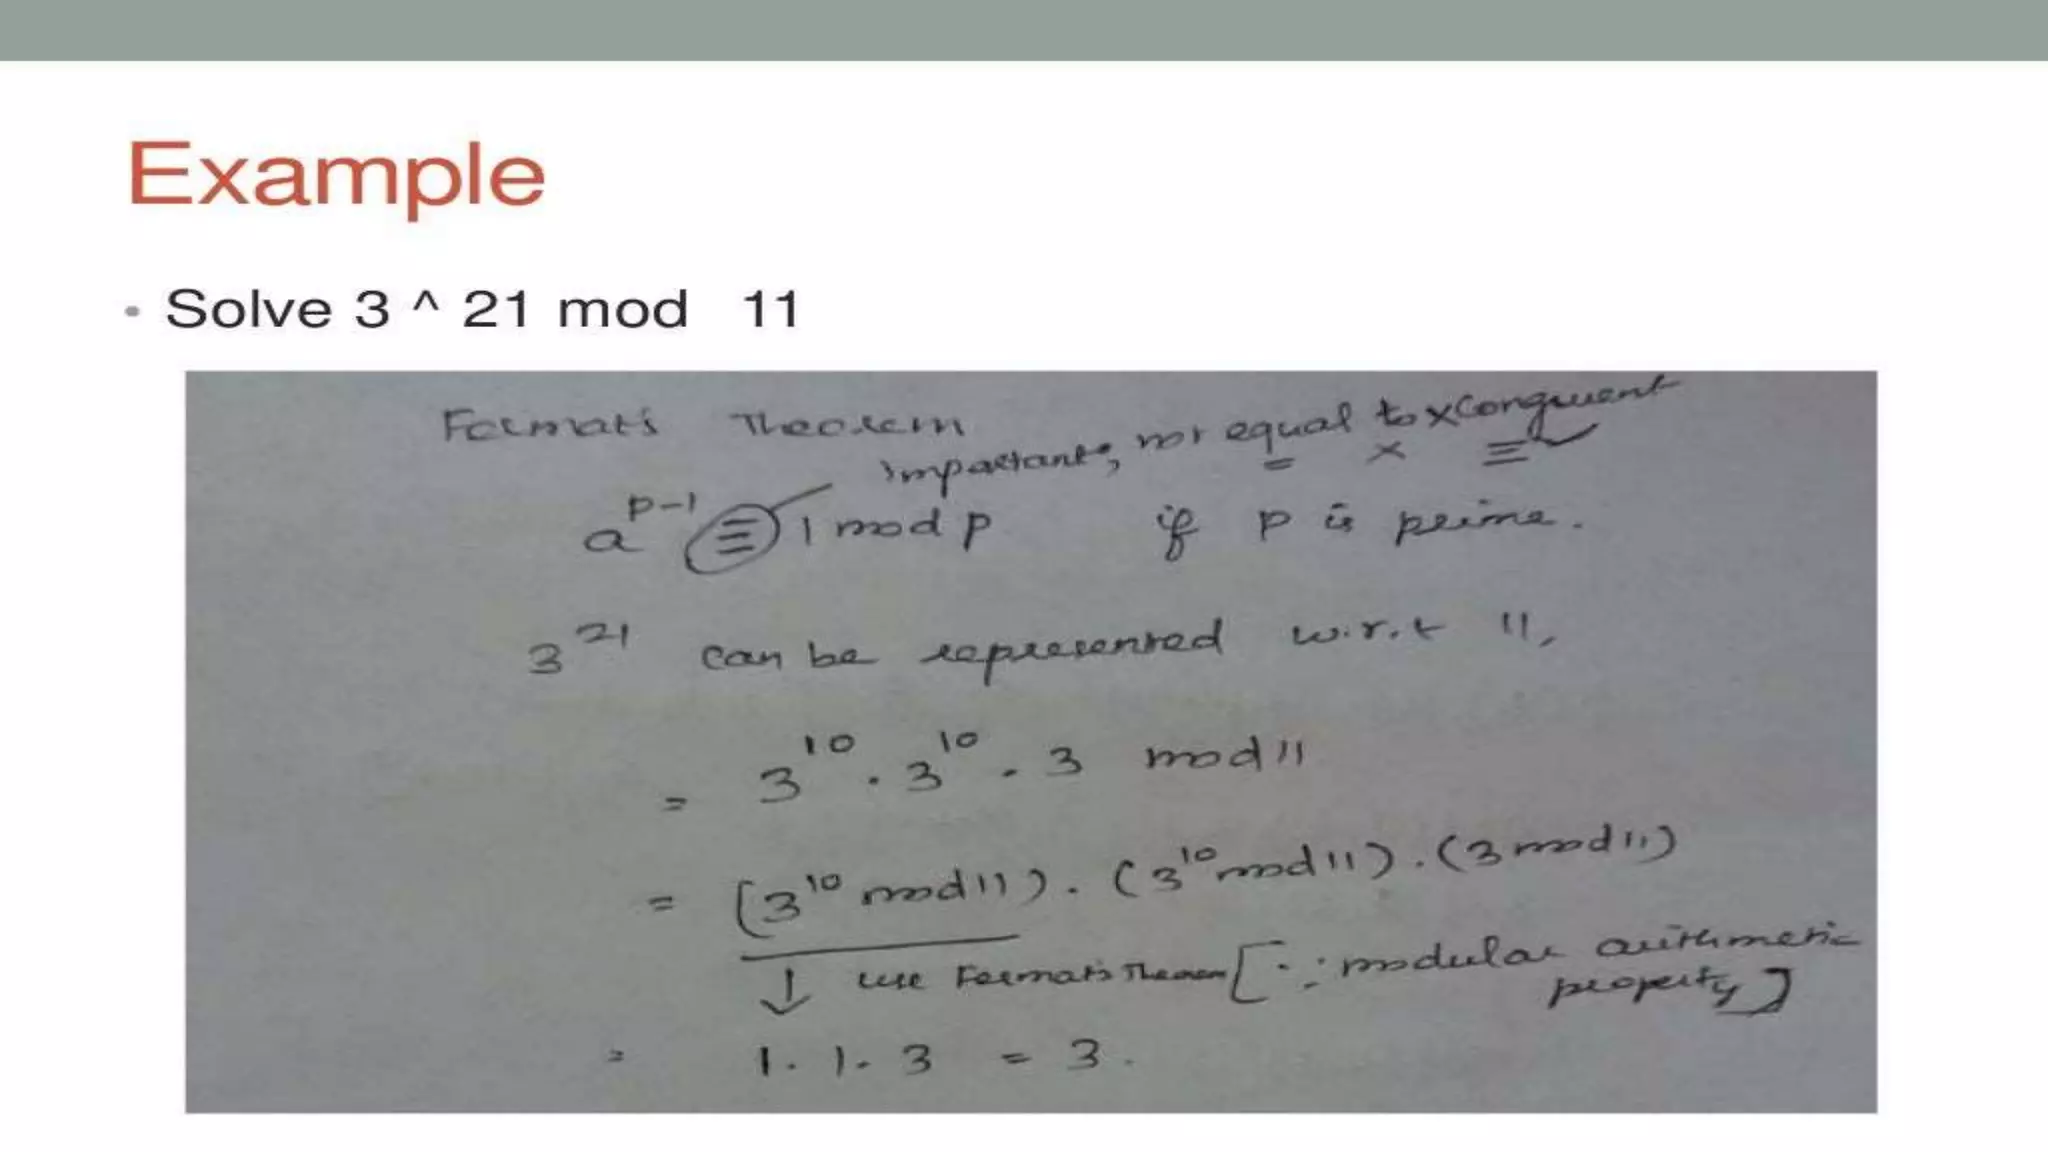 Example
• Solve 3 ^ 21 mod 11
Fermat's Theorem
important, not equal to x congruent
= × ≡ ✓
a^{p-1} ≡ 1 mod p if p is prime.
3^{21} can be represented w.r.t 11,
= 3^{10} . 3^{10} . 3 mod 11
= (3^{10} mod 11) . (3^{10} mod 11) . (3 mod 11)
↓ use Fermat's Theorem [∵ modular arithmetic
property]
= 1 . 1 . 3 = 3 .